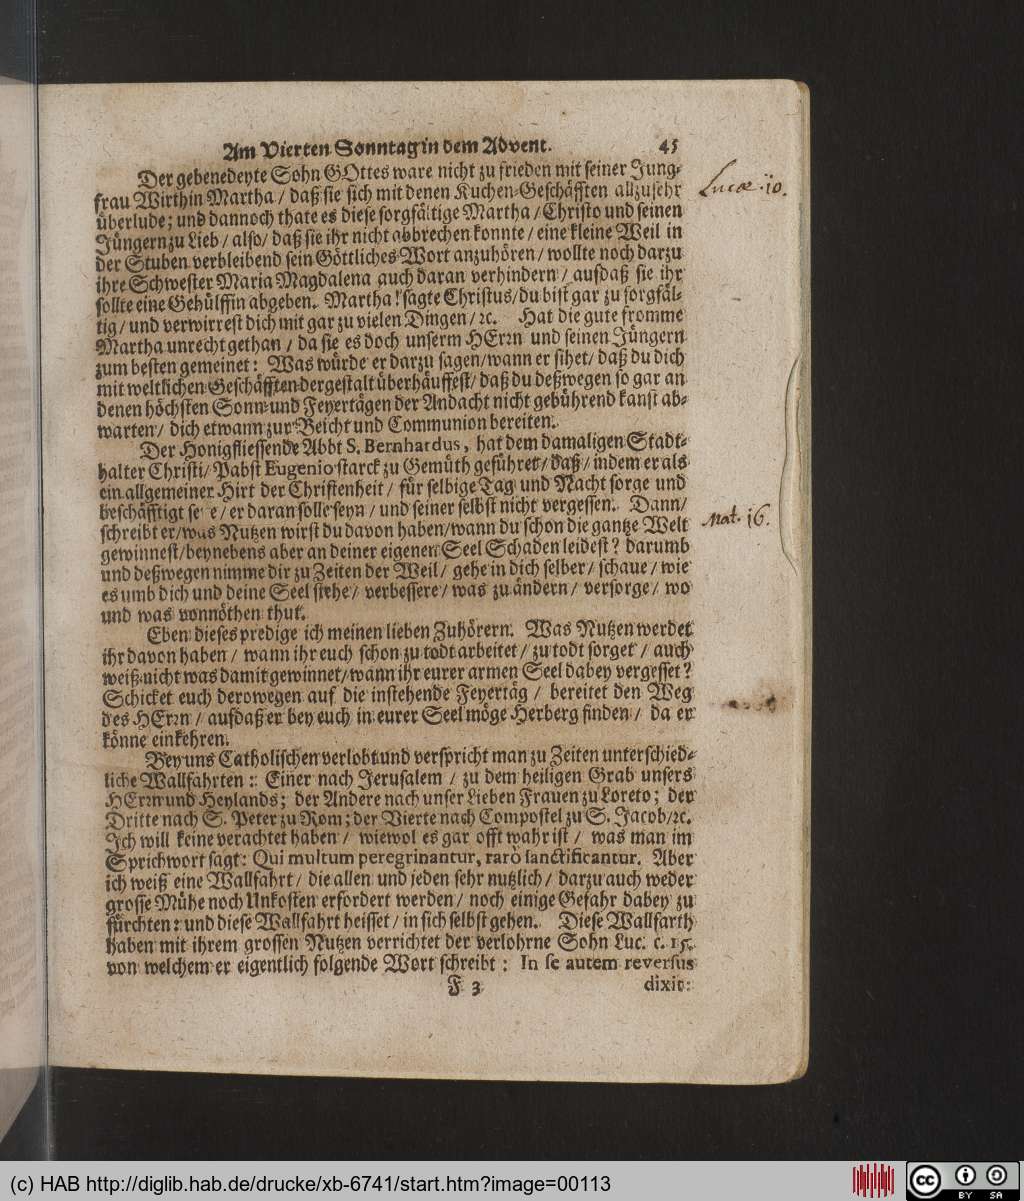 Am Vierten Sonntag in dem Advent. 45
Der gebenedeyte Sohn GOttes ware nicht zu frieden mit seiner Jung-
frau Wirthin Martha / daß sie sich mit denen Kuchen-Geschäfften allzusehr
überlude; und dannoch thate es diese sorgfältige Martha / Christo und seinen
Jüngern zu Lieb / also / daß sie ihr nicht abbrechen konnte / eine kleine Weil in
der Stuben verbleibend sein Göttliches Wort anzuhören / wollte noch darzu
ihre Schwester Maria Magdalena auch daran verhindern / aufdaß sie ihr
sollte eine Gehülffin abgeben. Martha! sagte Christus / du bist gar zu sorgfäl-
tig / und verwirrest dich mit gar zu vielen Dingen / ꝛc. Hat die gute fromme
Martha unrecht gethan / da sie es doch unserm HErrn und seinen Jüngern
zum besten gemeinet: Was würde er darzu sagen / wann er sihet / daß du dich
mit weltlichen Geschäfften dergestalt überhäuffest / daß du deßwegen so gar an
denen höchsten Sonn- und Feyertägen der Andacht nicht gebührend kanst ab-
warten / dich etwann zur Beicht und Communion bereiten.
Der Honigfliessende Abbt S. Bernhardus, hat dem damaligen Stadt-
halter Christi / Pabst Eugenio starck zu Gemüth geführet / daß / indem er als
ein allgemeiner Hirt der Christenheit / für selbige Tag und Nacht sorge und
beschäfftigt seye / er daran solle seyn / und seiner selbst nicht vergessen. Dann /
schreibt er / was Nutzen wirst du davon haben / wann du schon die gantze Welt
gewinnest / beynebens aber an deiner eigenen Seel Schaden leidest? darumb
und deßwegen nimme dir zu Zeiten der Weil / gehe in dich selber / schaue / wie
es umb dich und deine Seel stehe / verbessere / was zu ändern / versorge / wo
und was vonnöthen thut.
Eben dieses predige ich meinen lieben Zuhörern. Was Nutzen werdet
ihr davon haben / wann ihr euch schon zu todt arbeitet / zu todt sorget / auch
weiß nicht was damit gewinnet / wann ihr eurer armen Seel dabey vergesset?
Schicket euch derowegen auf die instehende Feyertäg / bereitet den Weg
des HErrn / aufdaß er bey euch in eurer Seel möge Herberg finden / da er
könne einkehren.
Bey uns Catholischen verlobt und verspricht man zu Zeiten unterschied-
liche Wallfahrten: Einer nach Jerusalem / zu dem heiligen Grab unsers
HErrn und Heylands; der Andere nach unser Lieben Frauen zu Loreto; der
Dritte nach S. Peter zu Rom; der Vierte nach Compostel zu S. Jacob / ꝛc.
Ich will keine verachtet haben / wiewol es gar offt wahr ist / was man im
Sprichwort sagt: Qui multum peregrinantur, rarò sanctificantur. Aber
ich weiß eine Wallfahrt / die allen und jeden sehr nutzlich / darzu auch weder
grosse Mühe noch Unkosten erfordert werden / noch einige Gefahr dabey zu
fürchten: und diese Wallfahrt heisset / in sich selbst gehen. Diese Wallfarth
haben mit ihrem grossen Nutzen verrichtet der verlohrne Sohn Luc. c. 15.
von welchem er eigentlich folgende Wort schreibt: In se autem reversus
F 3 dixit:
Lucæ. 10.
Mat. 16.
(c) HAB http://diglib.hab.de/drucke/xb-6741/start.htm?image=00113
cc BY SA